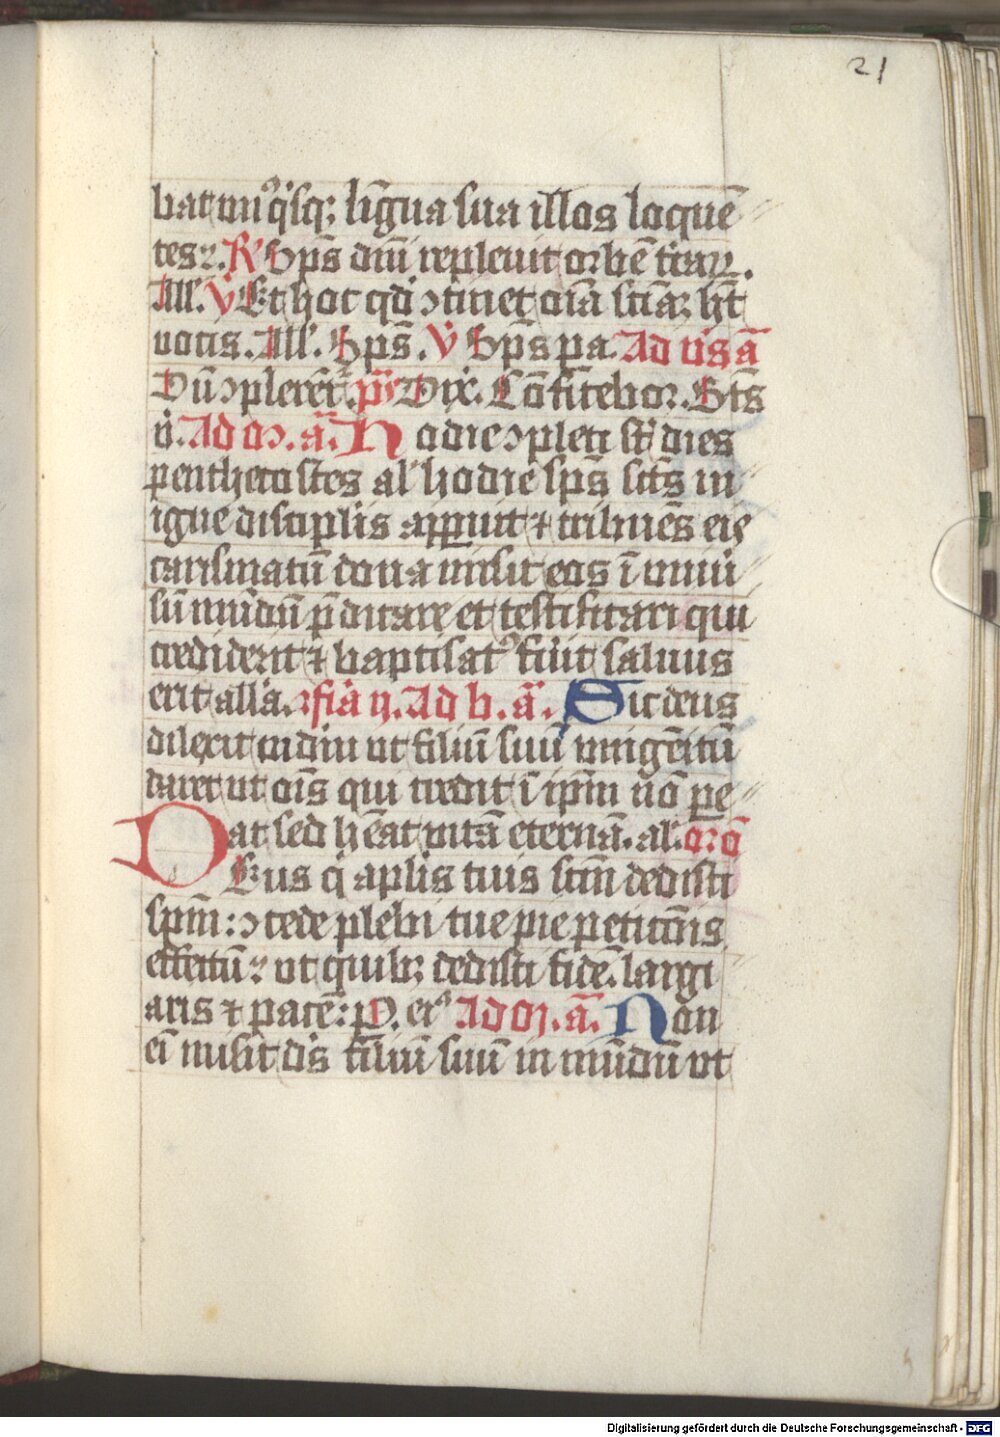 21
bat unꝰqͥsqꝫ līgua sua illos loquē
tes. R̸ Sps̄ dnī repleuit orbē t̄raꝝ.
All. V̇ Et hoc qd̓ ꝯtinet oīa sciāꝫ hꝫt
uocis. All'. Sps̄. V̇ Sps̄ pa. Ad uꝰs ā
Dū ꝯplerēt̄. ps̄ Dix. Cōfitebor. Bt̄s
ii. Ad oꝝ. ā. Hodie ꝯpleti st̄ dies
penthecostes al' hodie sps̄ sct̄s in
igne discip̄lis apparuit ⁊ tribuēs eis
carismatū dona misit eos ī uniū
sū mūdū p̄dicare et testificari qui
crediderit ⁊ baptisatꝰ fūit saluus
erit all'a. fīa ij. Ad b. ā. Sic deus
dilexit mūdū ut filiū suū unigēitū
daret ut oīs qui credit ī ipm̄ nō pe
at sed hēat uitā eternā. al'. orō
Deus q̇ aplīs tuis sctm̄ dedisti
spm̄: ꝯcede plebi tue pie petitiōnis
effectū ut quibꝫ dedisti fidē largi
aris ⁊ pacē: p. etᷓ Ad oꝝ. ā. Non
eī misit dīs filiū suū in mūdū ut
Digitalisierung gefördert durch die Deutsche Forschungsgemeinschaft - DFG